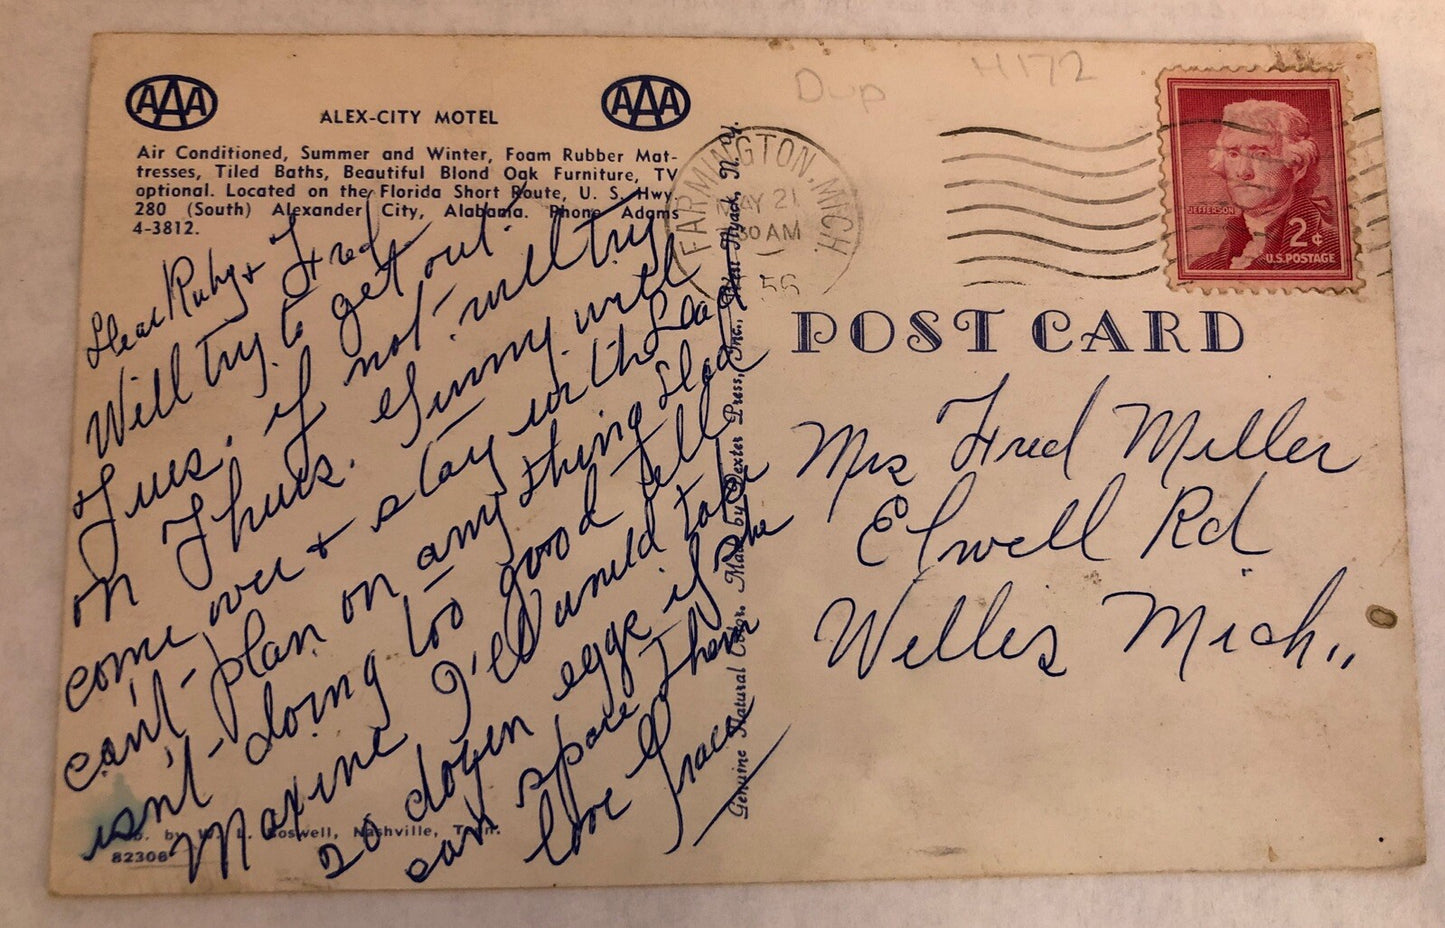 AAA
AAA
ALEX-CITY MOTEL
Air Conditioned, Summer and Winter, Foam Rubber Mat-
tresses, Tiled Baths, Beautiful Blond Oak Furniture, TV
optional. Located on the Florida Short Route, U. S. Hwy.
280 (South) Alexander City, Alabama. Phone Adams
4-3812.
Dear Ruby + Fred
Will try to get out
Tues. if not will try
on Thurs. Ginny will
come over + stay with Dad
can't plan on anything Dad
isn't doing too good Tell
Maxine I'll would take
20 dozen eggs if she
can spare them
love Grace
Pub. by W. L. Boswell, Nashville, Tenn.
82308
Genuine Natural Color. Made by Dexter Press, Inc., West Nyack, N. Y.
Dup
H172
FARMINGTON, MICH.
MAY 21
30 AM
56
JEFFERSON
2¢
U.S. POSTAGE
POST CARD
Mrs Fred Miller
Elwell Rd
Willis Mich,,